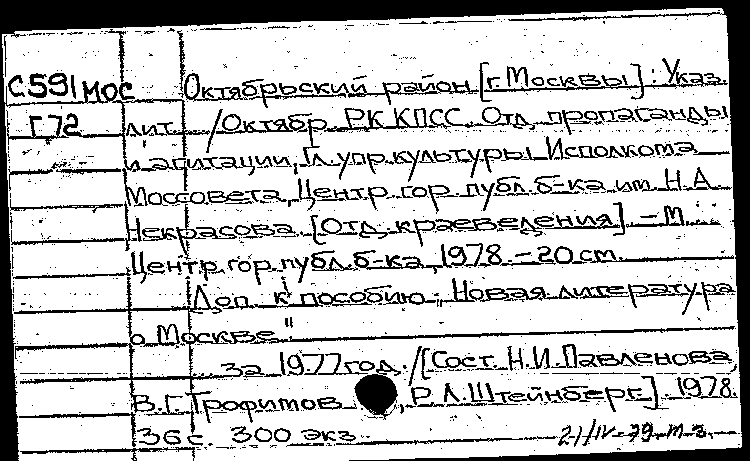 С591мос Октябрьский район [г. Москвы] : Указ.
Г72 лит. /Октябр. РК КПСС. Отд. пропаганды
и агитации, Гл. упр. культуры Исполкома
Моссовета, Центр. гор. публ. б-ка им. Н.А.
Некрасова. [Отд. краеведения] . – М. :
Центр. гор. публ. б-ка, 1978. – 20 см.
Доп. к пособию „Новая литература
о Москве"
за 1977 год. /[Сост. Н.И. Павленова,
В.Г. Трофимов, Р.А. Штейнберг]. 1978.
36 с. 300 экз.
21/IV-79-м-з.